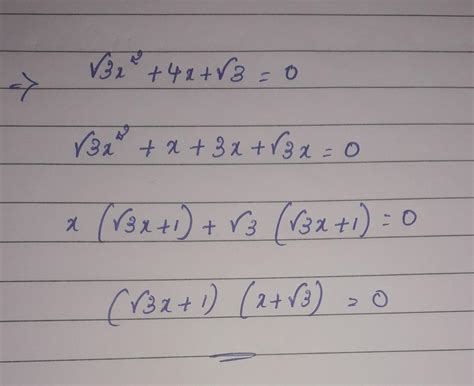 ⇒ √3x² + 4x + √3 = 0
√3x² + x + 3x + √3x = 0
x (√3x+1) + √3 (√3x+1) = 0
(√3x+1) (x+√3) = 0